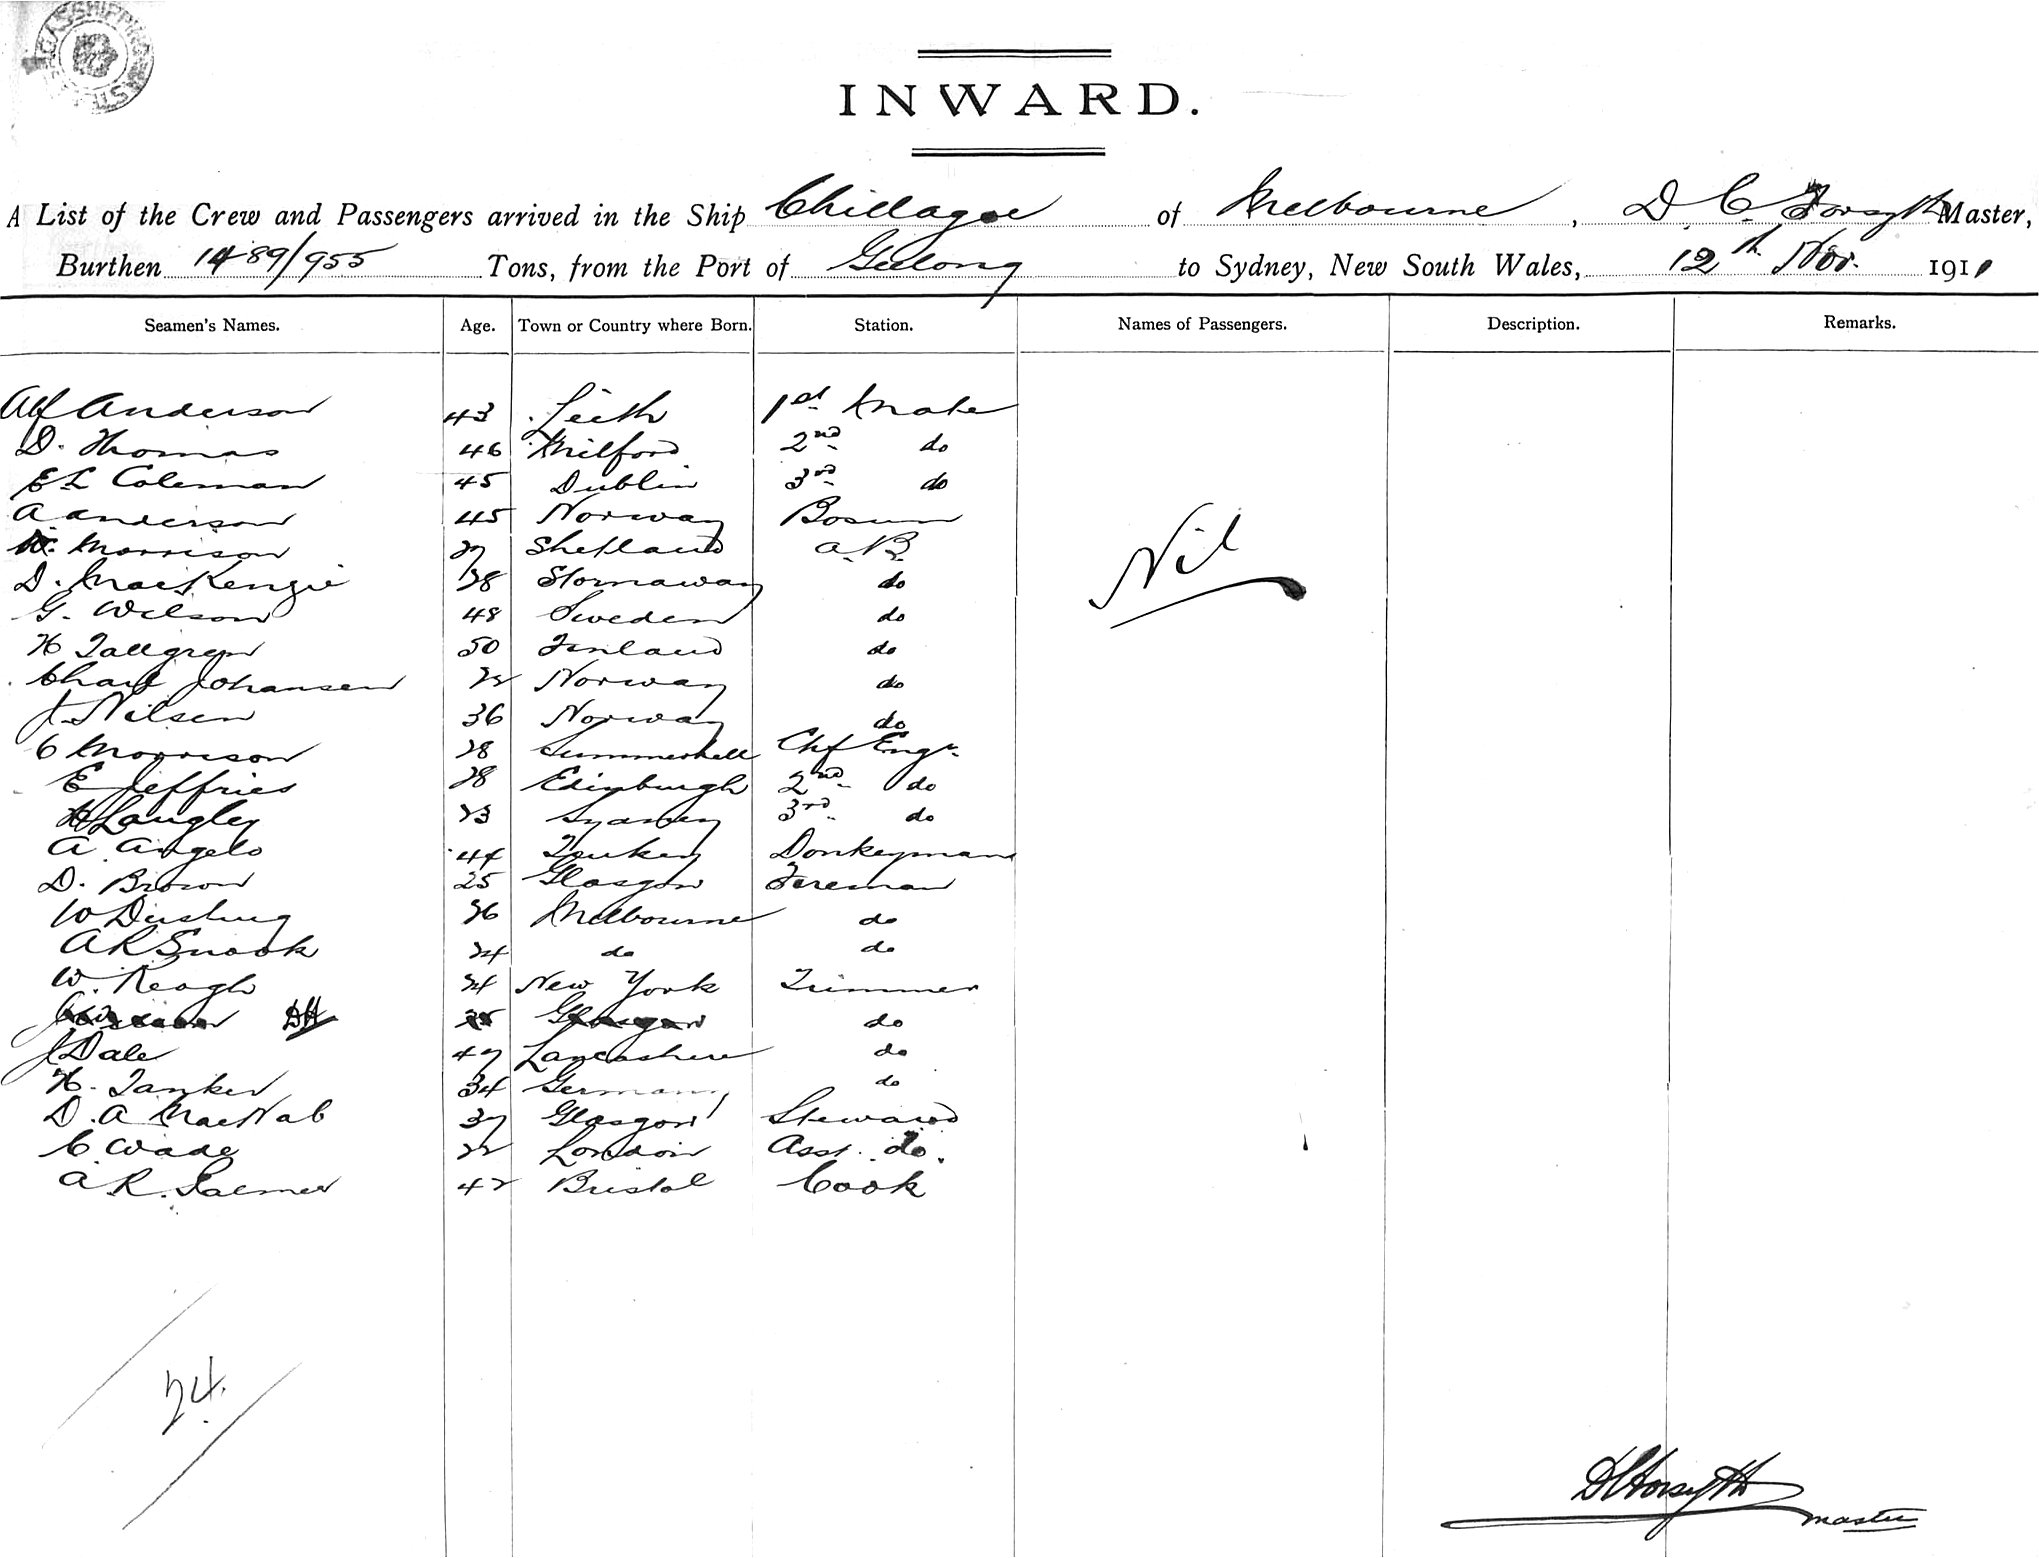 INWARD.
A List of the Crew and Passengers arrived in the Ship Chillagoe of Melbourne, D. C. Forsyth Master,
Burthen 1489/955 Tons, from the Port of Geelong to Sydney, New South Wales, 12th Nov. 1911
Seamen's Names. Age. Town or Country where Born. Station. Names of Passengers. Description. Remarks.
Alf Anderson 43 Leith 1st Mate
D. Thomas 46 Milford 2nd do
E L Coleman 45 Dublin 3rd do
A Anderson 45 Norway Bosun
Morrison 27 Shetland A.B.
Nil
D. MacKenzie 28 Stornaway do
G. Wilson 48 Sweden do
H Tallgren 50 Finland do
Charl Johansen 22 Norway do
J. Nilsen 36 Norway do
C Morrison 28 Summerhill Chf Engr.
E Jeffries 28 Edinburgh 2nd do
H Langley 23 Sydney 3rd do
A Angelo 44 Turkey Donkeyman
D. Brown 25 Glasgow Fireman
W 26 Melbourne do
A R Snook 24 do do
W. Keogh 24 New York Trimmer
DH Glasgow do
J Dale 47 Lancashire do
H. Tanker 34 Germany do
D. A MacNab 37 Glasgow Steward
C Wade 22 London Asst. do.
A. R. 42 Bristol Cook
24
D C Forsyth
master